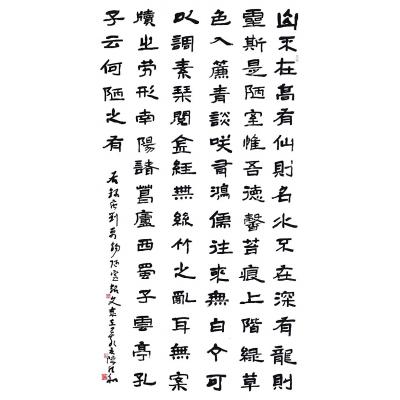 山不在高有仙則名水不在深有龍則
靈斯是陋室惟吾德馨苔痕上階綠草
色入簾青談咲有鴻儒往來無白丁可
以調素琴閱金經無絲竹之亂耳無案
牘之勞形南陽諸葛廬西蜀子雲亭孔
子云何陋之有